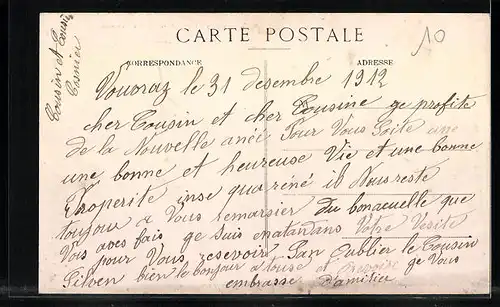 CARTE POSTALE
CORRESPONDANCE
ADRESSE
10
Cousin et Cousine
Vouvray le 31 desembre 1912
cher Cousin et cher Cousine ge profite
de la Nouvelle anée Pour Vous Soite une
une bonne et heureuse Vie et une bonne
Properite inse qua réné il Nous reste
toujou a Vous remarsier Du bonacuelle que
Vous aves fais ge suis enatandans Votre Vesite
pour Vous resevoir San Oublier le Cousin
Silven bien le bonjour a touse et ge Vous
embrasse D'amitier